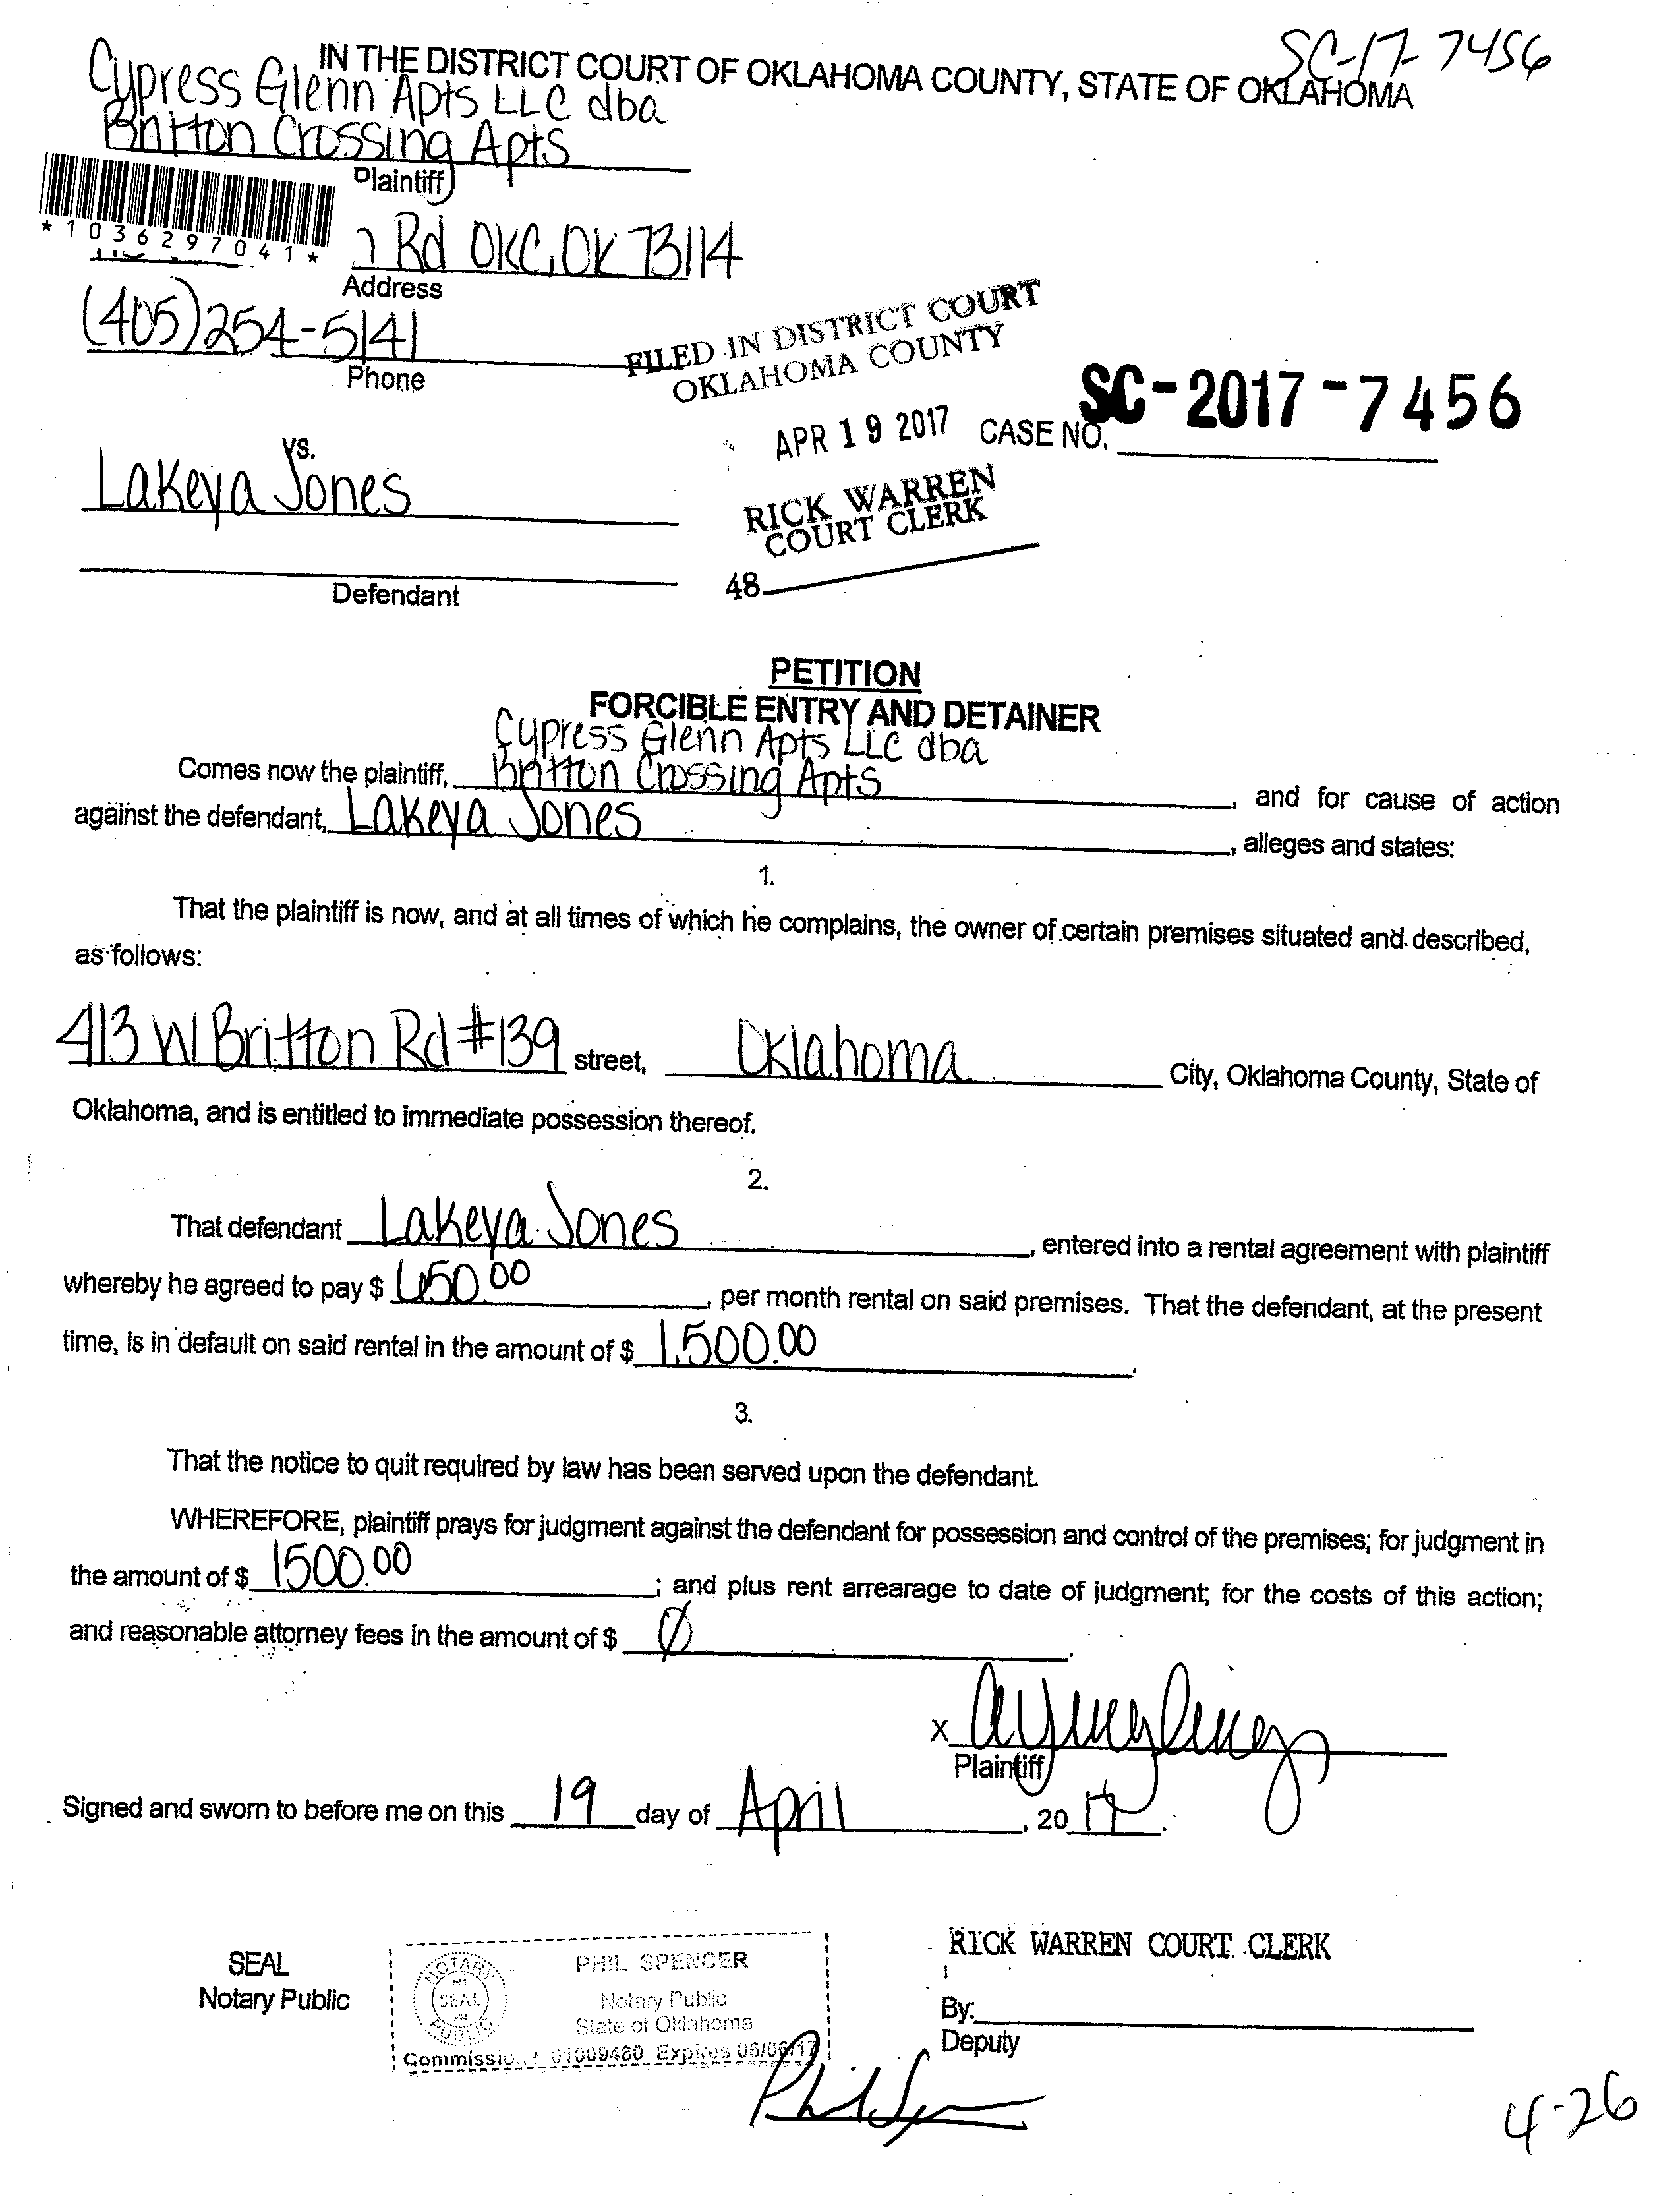 SC-17-7456
IN THE DISTRICT COURT OF OKLAHOMA COUNTY, STATE OF OKLAHOMA
Cypress Glenn Apts LLC dba
Britton Crossing Apts
Plaintiff
*1036297041*
Rd OKC, OK 73114
Address
(405)254-5141
Phone
FILED IN DISTRICT COURT
OKLAHOMA COUNTY
APR 19 2017
CASE NO. SC-2017-7456
RICK WARREN
COURT CLERK
48
vs.
Lakeya Jones
Defendant
PETITION
FORCIBLE ENTRY AND DETAINER
Cypress Glenn Apts LLC dba
Comes now the plaintiff, Britton Crossing Apts, and for cause of action
against the defendant, Lakeya Jones, alleges and states:
1.
That the plaintiff is now, and at all times of which he complains, the owner of certain premises situated and described,
as follows:
413 W Britton Rd #139 street, Oklahoma City, Oklahoma County, State of
Oklahoma, and is entitled to immediate possession thereof.
2.
That defendant Lakeya Jones, entered into a rental agreement with plaintiff
whereby he agreed to pay $ 650.00, per month rental on said premises. That the defendant, at the present
time, is in default on said rental in the amount of $ 1,500.00.
3.
That the notice to quit required by law has been served upon the defendant.
WHEREFORE, plaintiff prays for judgment against the defendant for possession and control of the premises; for judgment in
the amount of $ 1500.00; and plus rent arrearage to date of judgment; for the costs of this action;
and reasonable attorney fees in the amount of $ Ø.
x
Plaintiff
Signed and sworn to before me on this 19 day of April, 2017.
SEAL
Notary Public
NOTARY
SEAL
PUBLIC
PHIL SPENCER
Notary Public
State of Oklahoma
01009480 Expires 05/06/17
Phil Spencer
RICK WARREN COURT CLERK
By:
Deputy
4-26